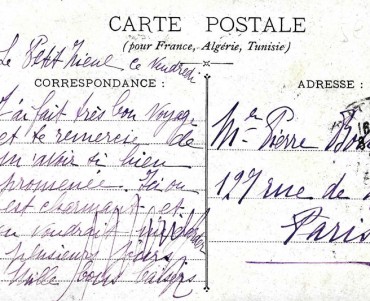 CARTE POSTALE
(pour France, Algérie, Tunisie)
Le Petit ce Vendredi
CORRESPONDANCE :
ADRESSE :
J'ai fait très bon voyage
et te remercie de
m'avoir si bien
promenée. Ici on
est charmant et
on voudrait
plusieurs jours
Mille bons baisers
Mr Pierre
127 rue de
Paris